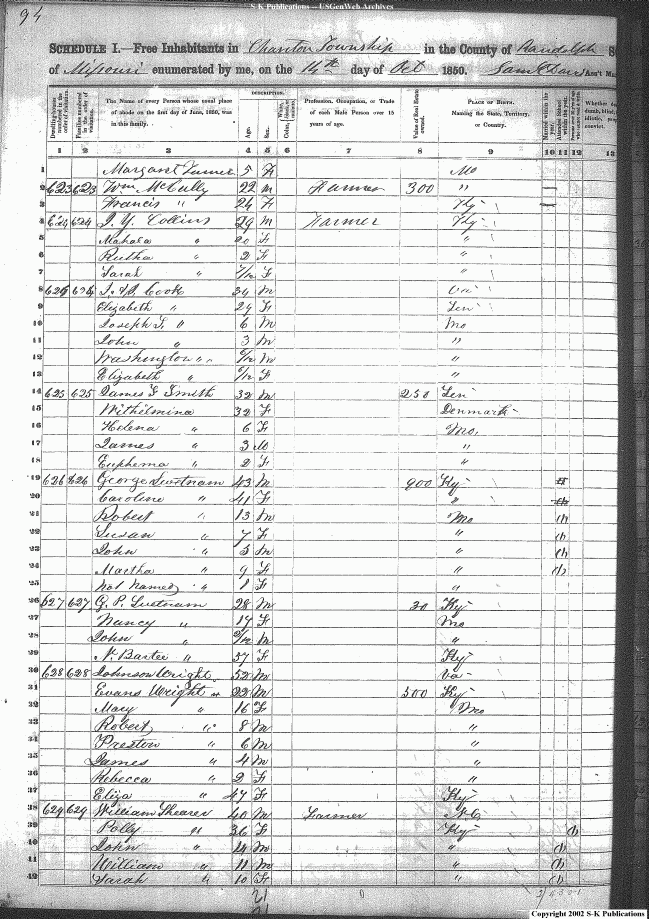 S-K Publications - USGenWeb Archives
94
SCHEDULE I.—Free Inhabitants in Chariton Township in the County of Randolph S
of Missouri enumerated by me, on the 14th day of Oct 1850. Ass't Ma
Dwelling-houses numbered in the order of visitation.
Families numbered in the order of visitation.
The Name of every Person whose usual place of abode on the first day of June, 1850, was in this family.
DESCRIPTION.
Age.
Sex.
Color,
Profession, Occupation, or Trade of each Male Person over 15 years of age.
Value of Real Estate owned.
PLACE OF BIRTH. Naming the State, Territory, or Country.
Married within the year.
Whether de
1 2 3 4 5 6 7 8 9 10 11 12 13
1 Margaret Turner 5 F Mo
2 623 623 Wm McCully 22 M Farmer 300 "
3 Francis " 26 F Ky
4 624 624 J. Y. Collins 29 M Farmer Ky
5 Mahala " 20 F "
6 Rutha " 2 F "
7 Sarah " /12 F "
8 624 624 Cook 34 M Va
9 Elizabeth " 24 F Ten
10 Joseph " 6 M Mo
11 John " 3 M "
12 Washington " /12 M "
13 Elizabeth " /12 F "
14 625 625 James F Smith 32 M 250 Ten
15 Wilhelmina 32 F Denmark
16 Helena " 6 F Mo.
17 James " 3 M "
18 Euphema " 2 F "
19 626 626 George Swetnam 43 M 900 Ky
20 Caroline " 41 F "
21 Robert " 13 M Mo (1)
22 Susan " 7 F " (1)
23 John " 5 M " (1)
24 Martha " 9 F " (1)
25 Not Named " 1 F "
26 627 627 G. P. Swetnam 28 M 30 Ky
27 Nancy " 17 F Mo
28 John " /12 M "
29 N. Bartee " 57 F Ky
30 628 628 Johnson Wright 52 M Va
31 Evans Wright 22 M 500 Ky
32 Mary " 16 F Mo
33 Robert " 8 M "
34 Preston " 6 M "
35 James " 4 M "
36 Rebecca " 2 F "
37 Eliza " 47 F Ky
38 629 629 William Shearer 40 M Farmer N.C.
39 Polly " 36 F Ky (1)
40 John " 14 M " (1)
41 William " 11 M " (1)
42 Sarah " 10 F " (1)
21
Copyright 2002 S-K Publications